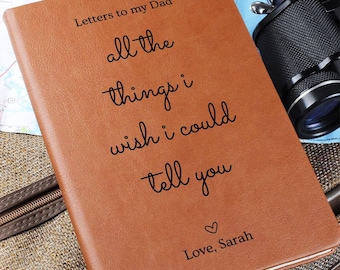 Letters to my Dad
all the
things i
wish i could
tell you
Love, Sarah